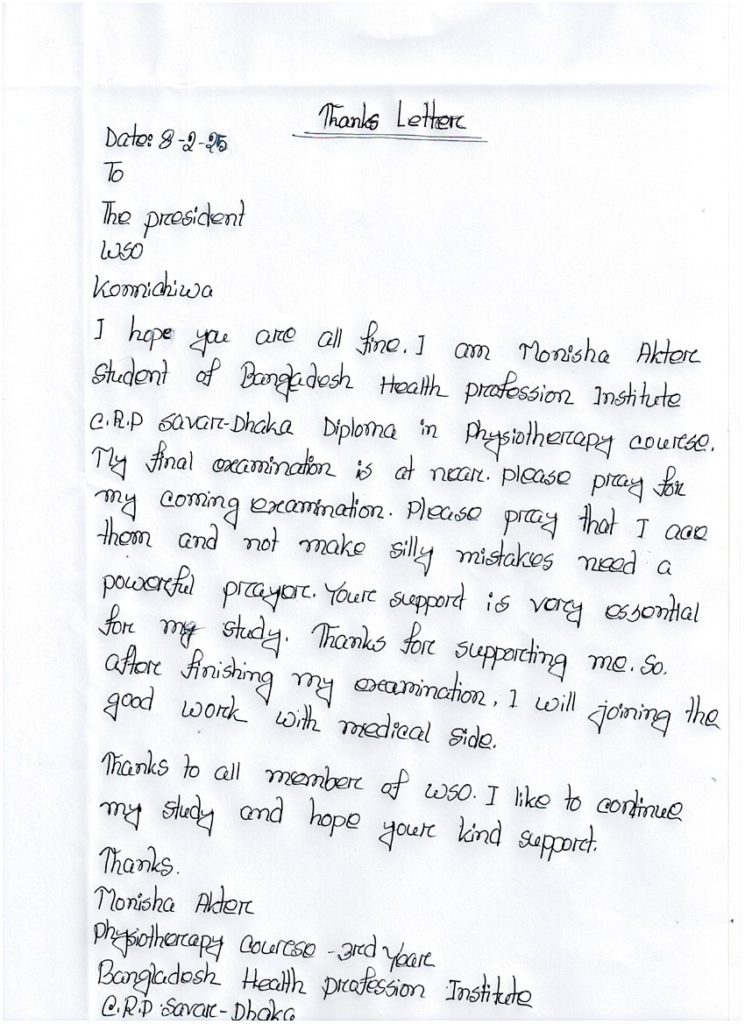 Thanks Letter
Date: 8-2-25
To
The president
WSO
Konnichiwa
I hope you are all fine. I am Monisha Akter
Student of Bangladesh Health profession Institute
C.R.P Savar-Dhaka Diploma in Physiotherapy course.
My final examination is at near. please pray for
my coming examination. Please pray that I ace
them and not make silly mistakes need a
powerful prayer. Your support is very essential
for my study. Thanks for supporting me. So.
after finishing my examination, I will joining the
good work with medical side.
Thanks to all member of WSO. I like to continue
my study and hope your kind support.
Thanks.
Monisha Akter
Physiotherapy Course -3rd Year
Bangladesh Health profession Institute
C.R.P Savar-Dhaka